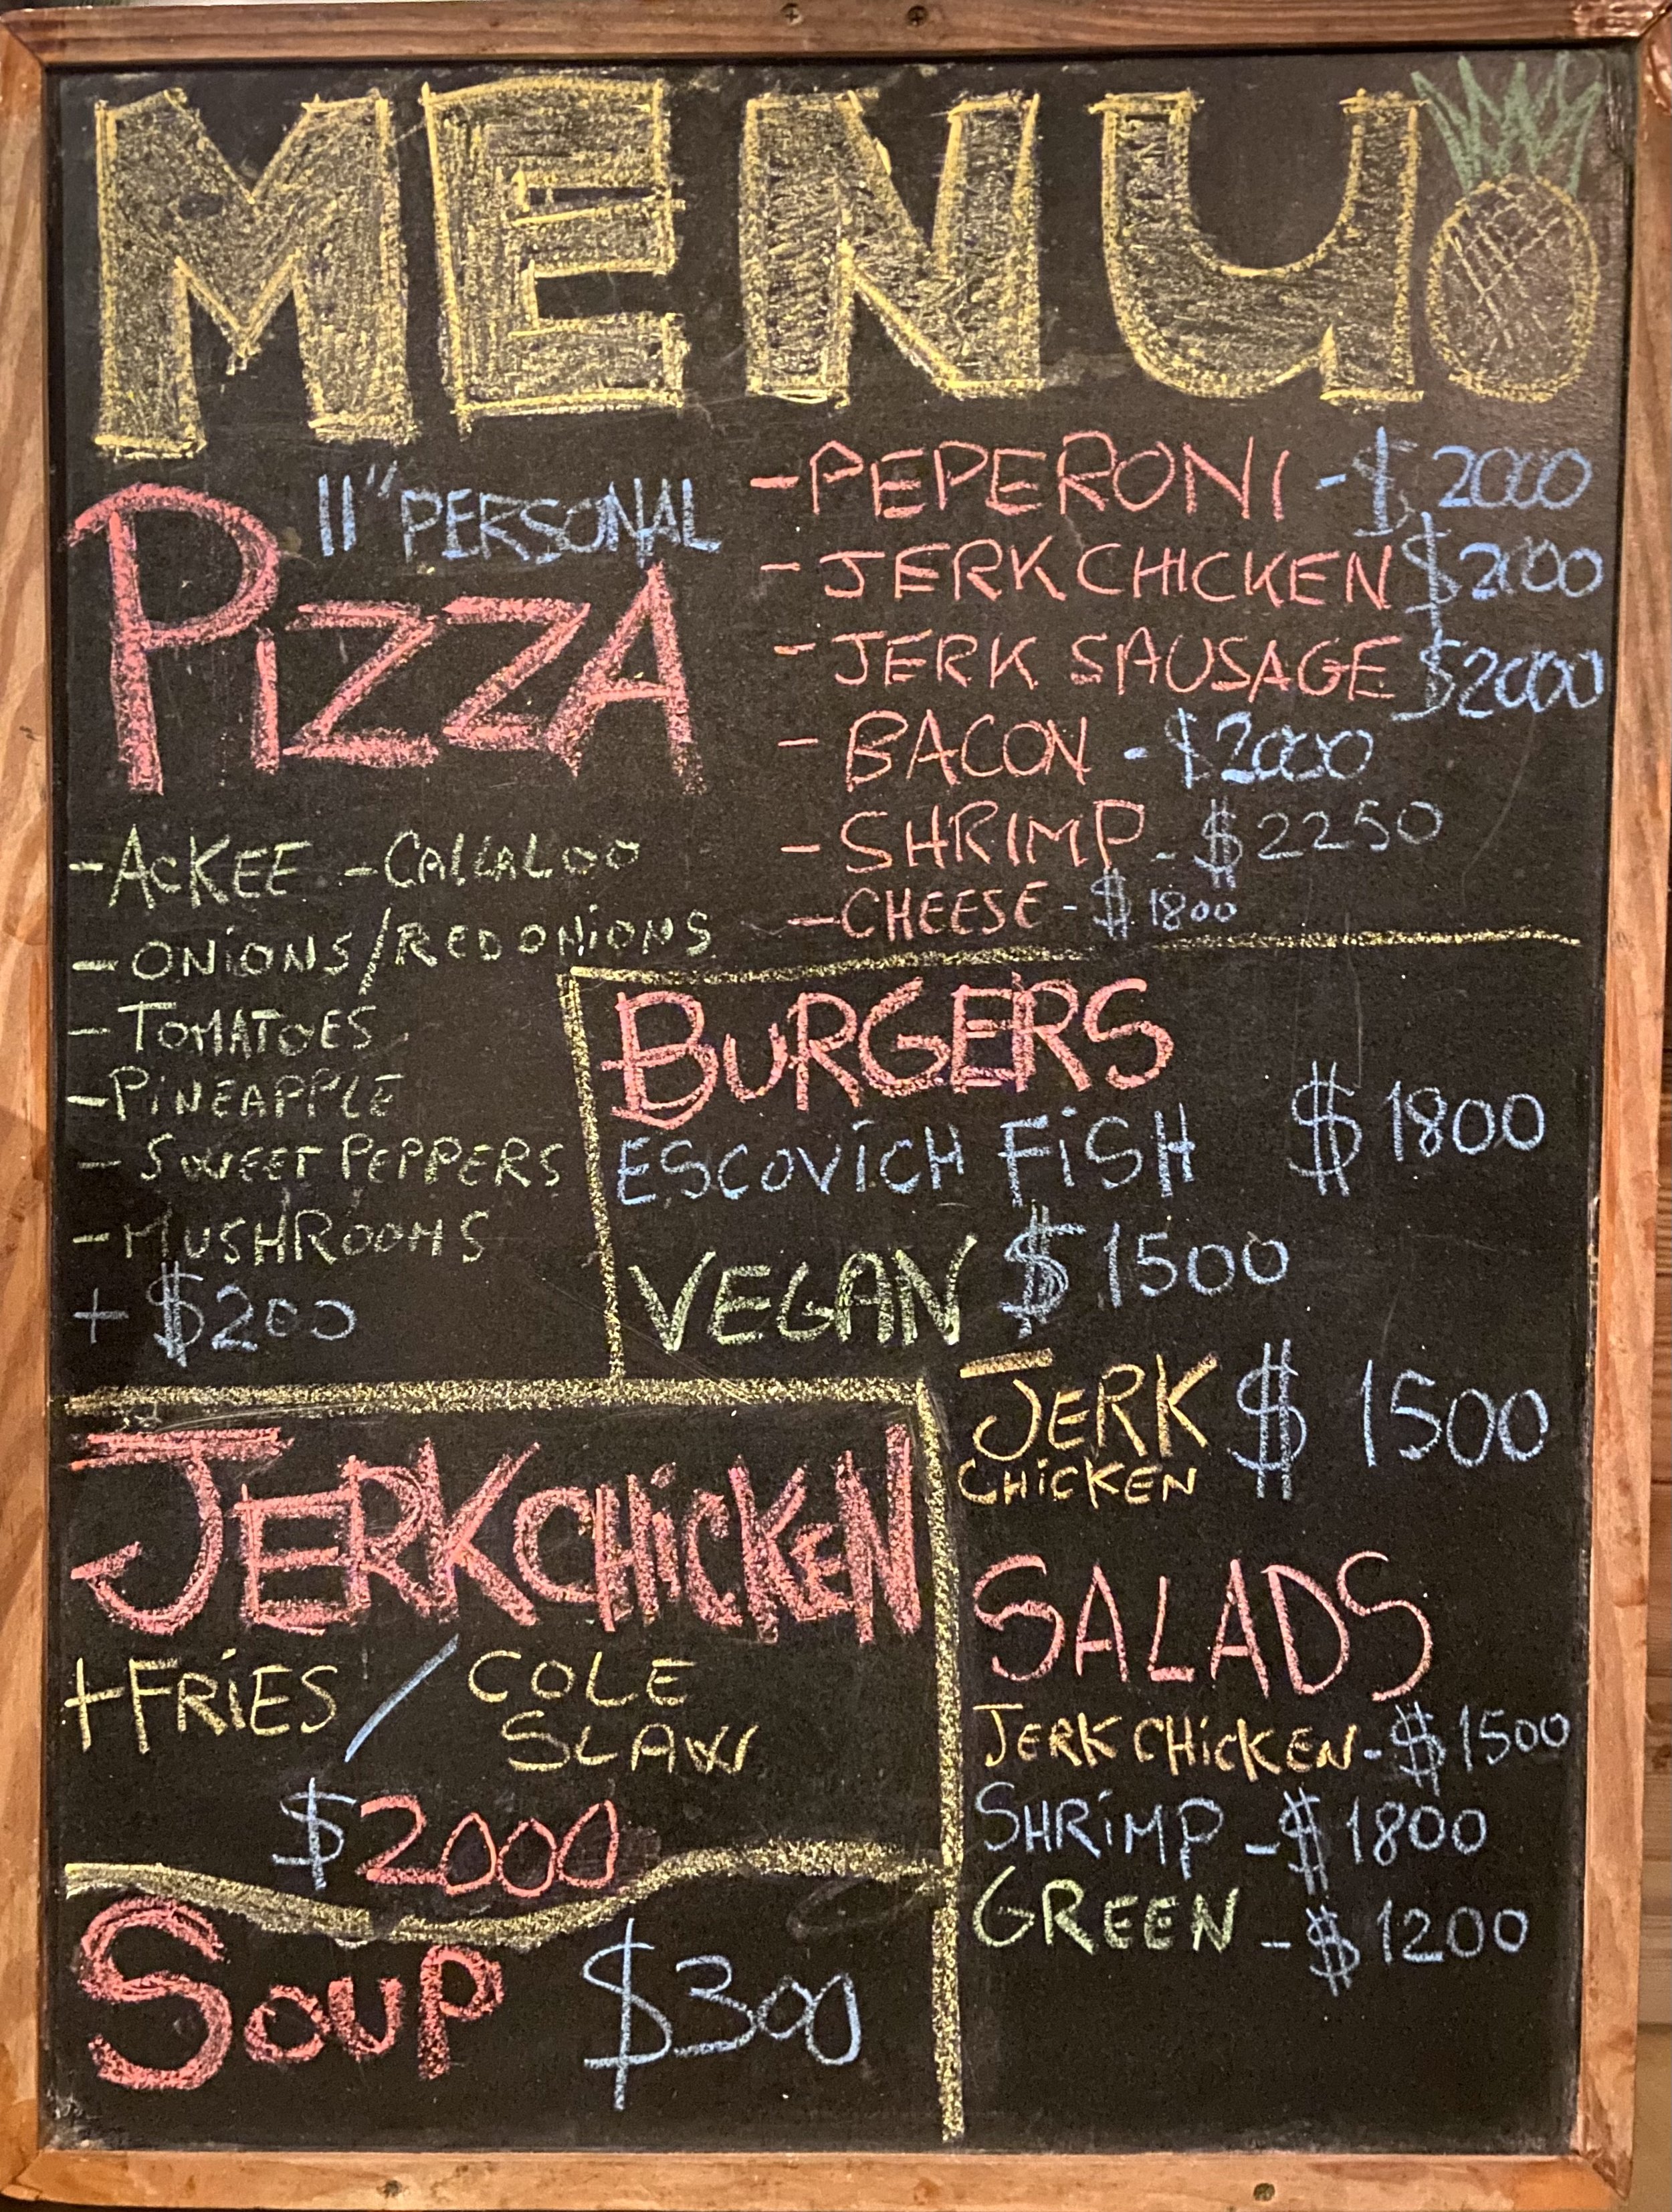 MENU
11" PERSONAL
PiZZA
- PEPERONI - $ 2000
- JERK CHICKEN $2000
- JERK SAUSAGE $2000
- BACON - $2000
- SHRIMP - $2250
- CHEESE - $ 1800
- ACKEE - CALLALOO
- ONiONS/RED ONiONS
- TOMATOES
- PiNEAPPLE
- SWEET PEPPERS
- MUSHROOMS
+ $200
BURGERS
ESCOViCH FiSH $1800
VEGAN $1500
JERK $ 1500
CHiCKEN
JERK CHiCKEN
+FRiES / COLE
SLAW
$2000
SOUP $300
SALADS
JERK CHiCKEN - $1500
SHRiMP - $1800
GREEN - $1200